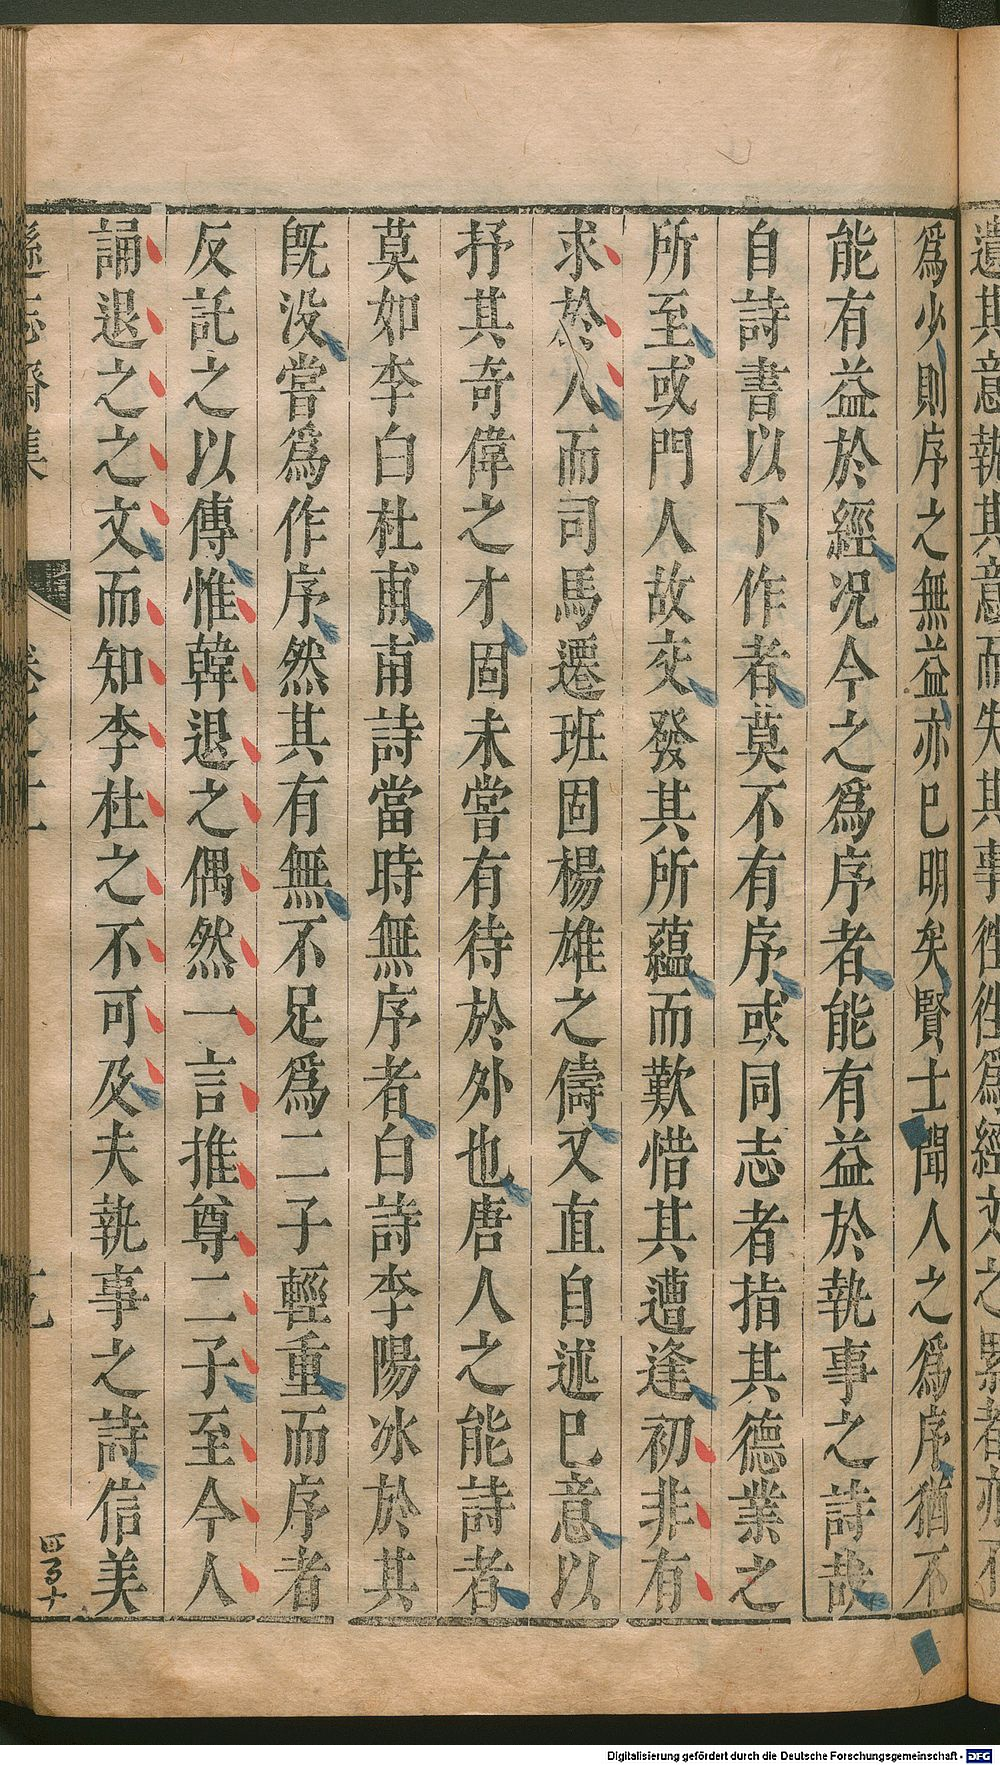 遺其意執其意而失其事徃徃爲經文之累者亦不
爲少則序之無益亦巳明矣賢士聞人之爲序猶不
能有益於經况今之爲序者能有益於執事之詩哉
自詩書以下作者莫不有序或同志者指其德業之
所至或門人故交發其所蘊而歎惜其遭逢初非有
求於人而司馬遷班固楊雄之儔又直自述巳意以
抒其奇偉之才固未嘗有待於外也唐人之能詩者
莫如李白杜甫甫詩當時無序者白詩李陽冰於其
旣没嘗爲作序然其有無不足爲二子輕重而序者
反託之以傳惟韓退之偶然一言推尊二子至今人
誦退之之文而知李杜之不可及夫執事之詩信美
遜志齋集
卷之十
Digitalisierung gefördert durch die Deutsche Forschungsgemeinschaft - DFG